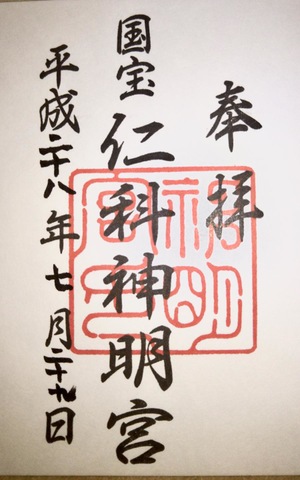 奉拝
国宝仁科神明宮
平成二十八年七月二十九日
神明宮印